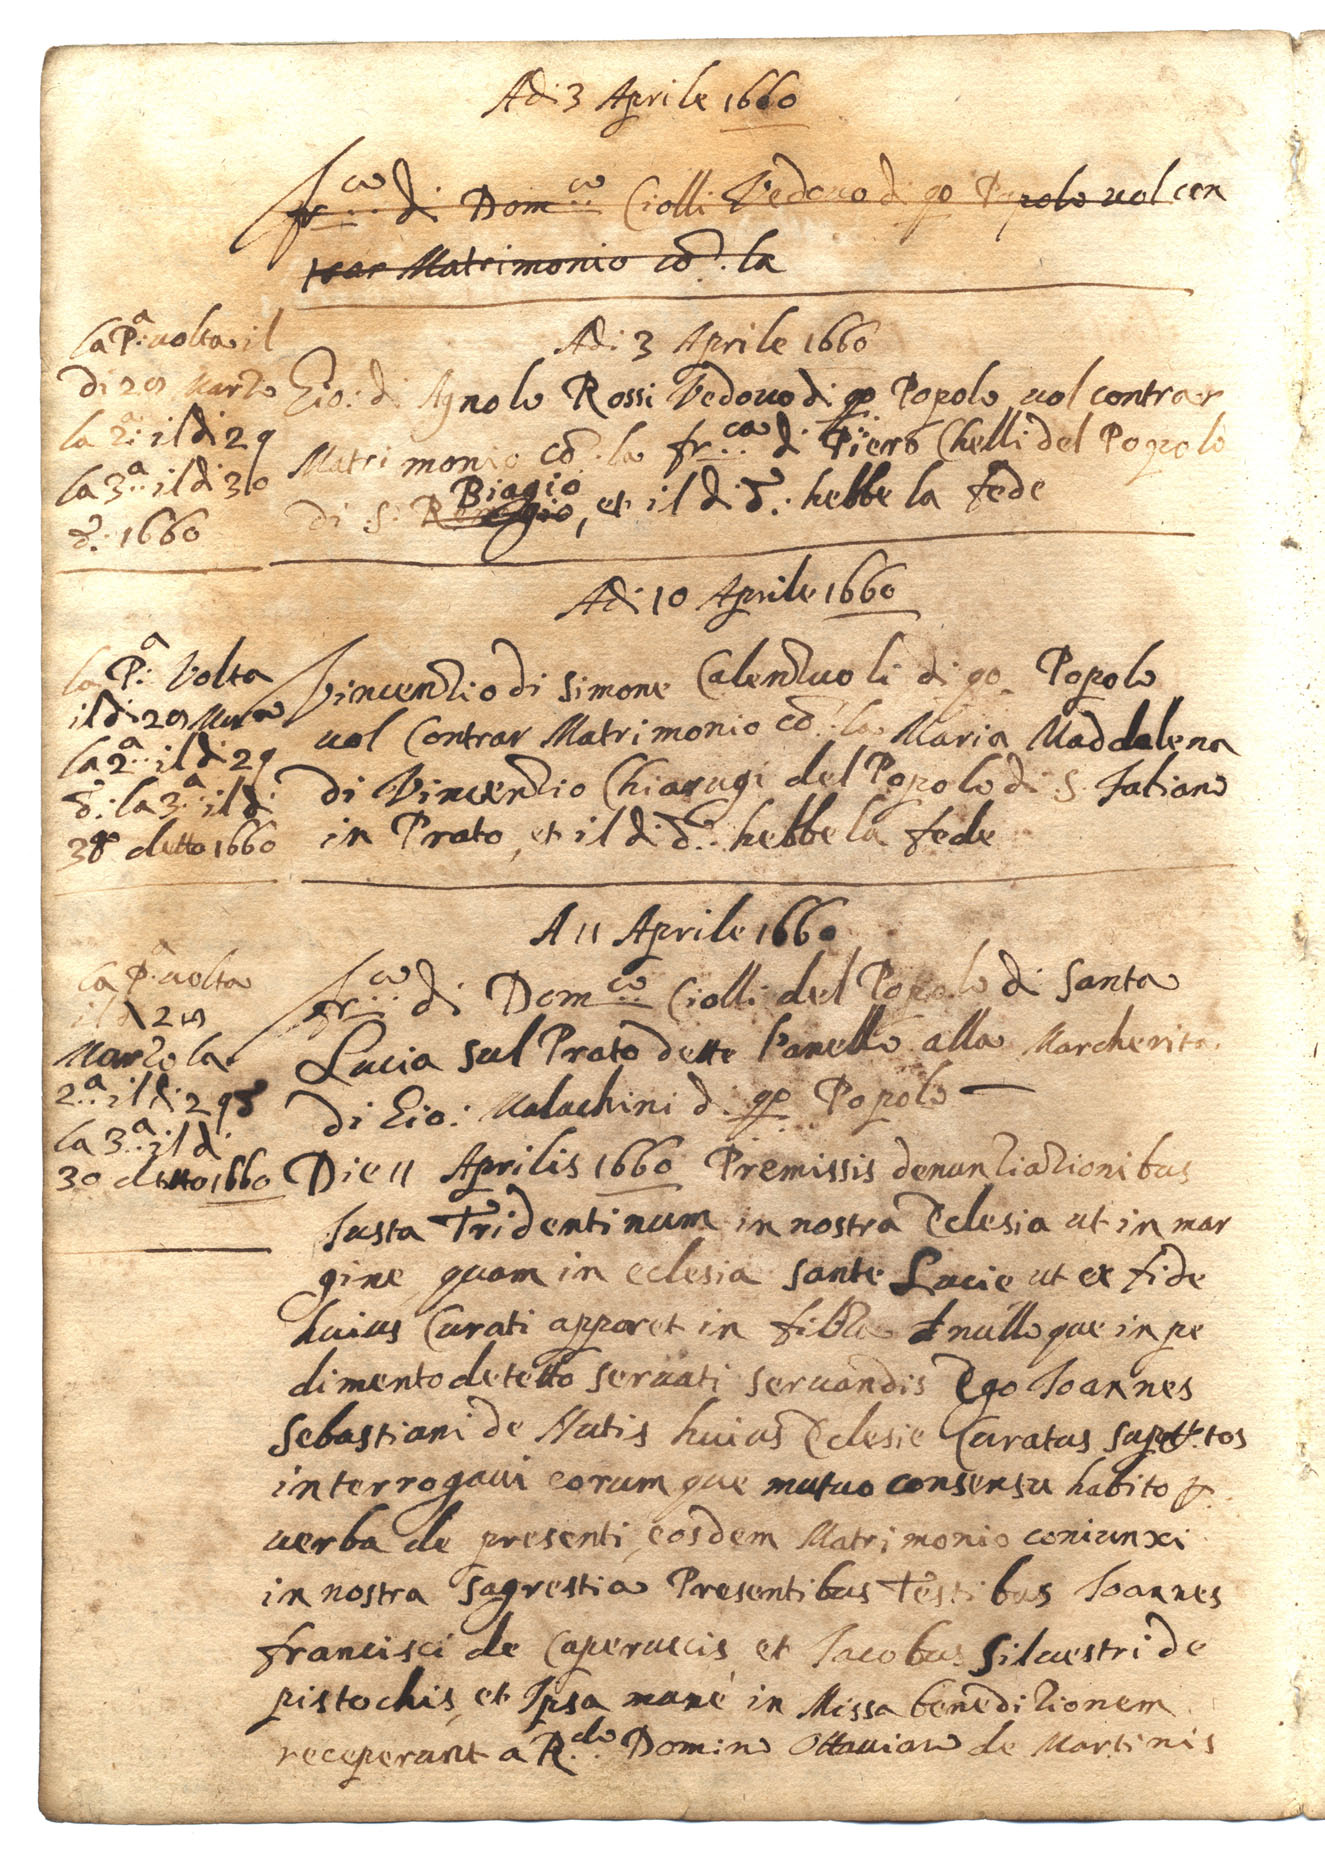 Adi 3 Aprile 1660
fr.co di Dom.co Ciolli Vedovo di qo Popolo vol con
trar Matrimonio cō la
la P.a volta il
di 28 Marzo
la 2.a il di 29
la 3.a il di 30
d. 1660
Adi 3 Aprile 1660
Gio: di Agnolo Rossi Vedouo di qo Popolo uol contrar
Matrimonio cō la fr.ca di Piero Chelli del Popolo
di S: Biagio, et il di d. hebbe la fede
Adi 10 Aprile 1660
la P.a Volta
il di 28 Marzo
la 2.a il di 29
d. la 3.a il di
30 detto 1660
Vincenzio di Simone Calenzuoli di qo Popolo
uol Contrar Matrimonio cō la Maria Maddalena
di Vincenzio Chiarugi del Popolo di S. Fabiano
in Prato, et il di d. hebbe la fede
A 11 Aprile 1660
la P.a uolta
il di 28
Marzo la
2.a il di 29
la 3.a il di
30 detto 1660
fr.co di Dom.co Ciolli del Popolo di Santa
Lucia sul Prato dette l'anello alla Marcherita
di Gio: Malachini d. qo Popolo
Die 11 Aprilis 1660 Premissis denunziazionibus
Iusta Tridentinum in nostra Eclesia ut in mar
gine quam in eclesia Sante Lucie ut ex fide
huius Curati apparet in filza nulloque inpe
dimento detetto servati servandis Ego Ioannes
Sebastiani de Nutis huius Eclesie Curatus sup.tos
interrogaui eorumque mutuo consensu habito p.
uerba de presenti, eosdem Matrimonio coniunxi
in nostra Sagrestia Presentibus Testibus Ioannes
francisci de Caperuscis et Iacobus Siluestri de
pistochis, et Ipsa mane in Missa benedizionem
receperunt a R.do Domino Ottauiano de Martinis